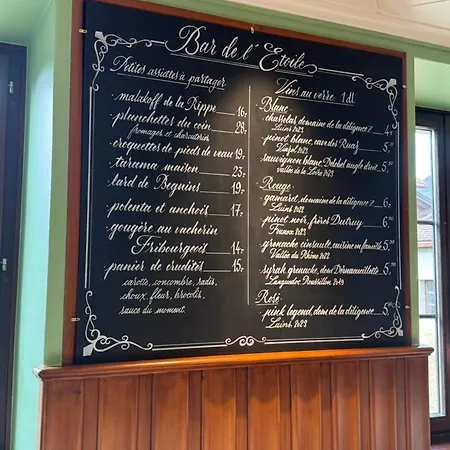 Bar de l'Etoile
Petites assiettes à partager
malakoff de la Rippe 16.-
planchettes du coin 28.-
fromages et charcuteries
croquettes de pieds de veau 19.-
tarama maison 23.-
lard de Begnins 19.-
polenta et anchois 17.-
gougère au vacherin
Fribourgeois 14.-
panier de crudités 15.-
carotte, concombre, radis,
choux, fleur, brocolis,
sauce du moment.
Vins au verre 1dl
Blanc
chasselas domaine de la diligence 4.-
Luins
pinot blanc, cave des Ruaz 5.
Vinzel 2023
sauvignon blanc
5.
vallée de la Loire 2023
Rouge
gamaret, domaine de la diligence 6.-
Luins 2022
pinot noir, frères Dutruy 6.-
Founex 2023
grenache cinsault, cuisine en famille 5.
Vallée du Rhône 2022
syrah grenache, dom 5.
Languedoc Roussillon 2019
Rosé
pink legend, dom de la diligence 5.
Luins 2023